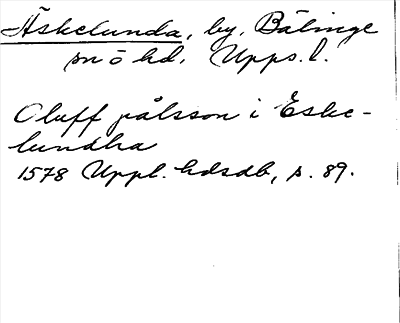 Äskelunda, by, Bälinge
sn ö hd. Upps. l.
Oluff pålsson i Eske-
lundha
1578 Uppl. hdsdb, s. 89.